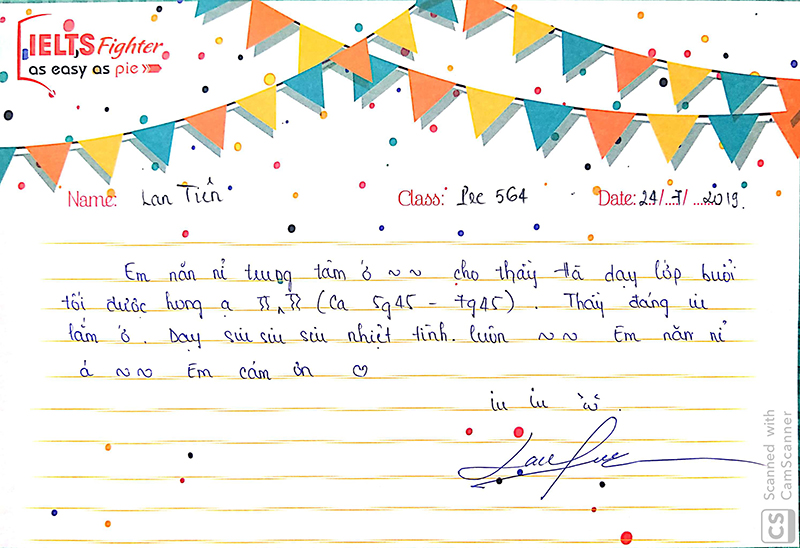 IELTS Fighter
as easy as pie
Name: Lan Tiên Class: Pec 564 Date: 24/..7/ ...2019.
Em năn nỉ trung tâm ó ~ ~ cho thầy Hà dạy lớp buổi
tối được hong ạ ㅠㅅㅠ (Ca 5g45 - 7g45). Thầy đáng iu
lắm ó. Dạy siu siu siu nhiệt tình. luôn ~~ Em năn nỉ
á ~~ Em cám ơn ♡
iu iu
Scanned with
CamScanner
CS